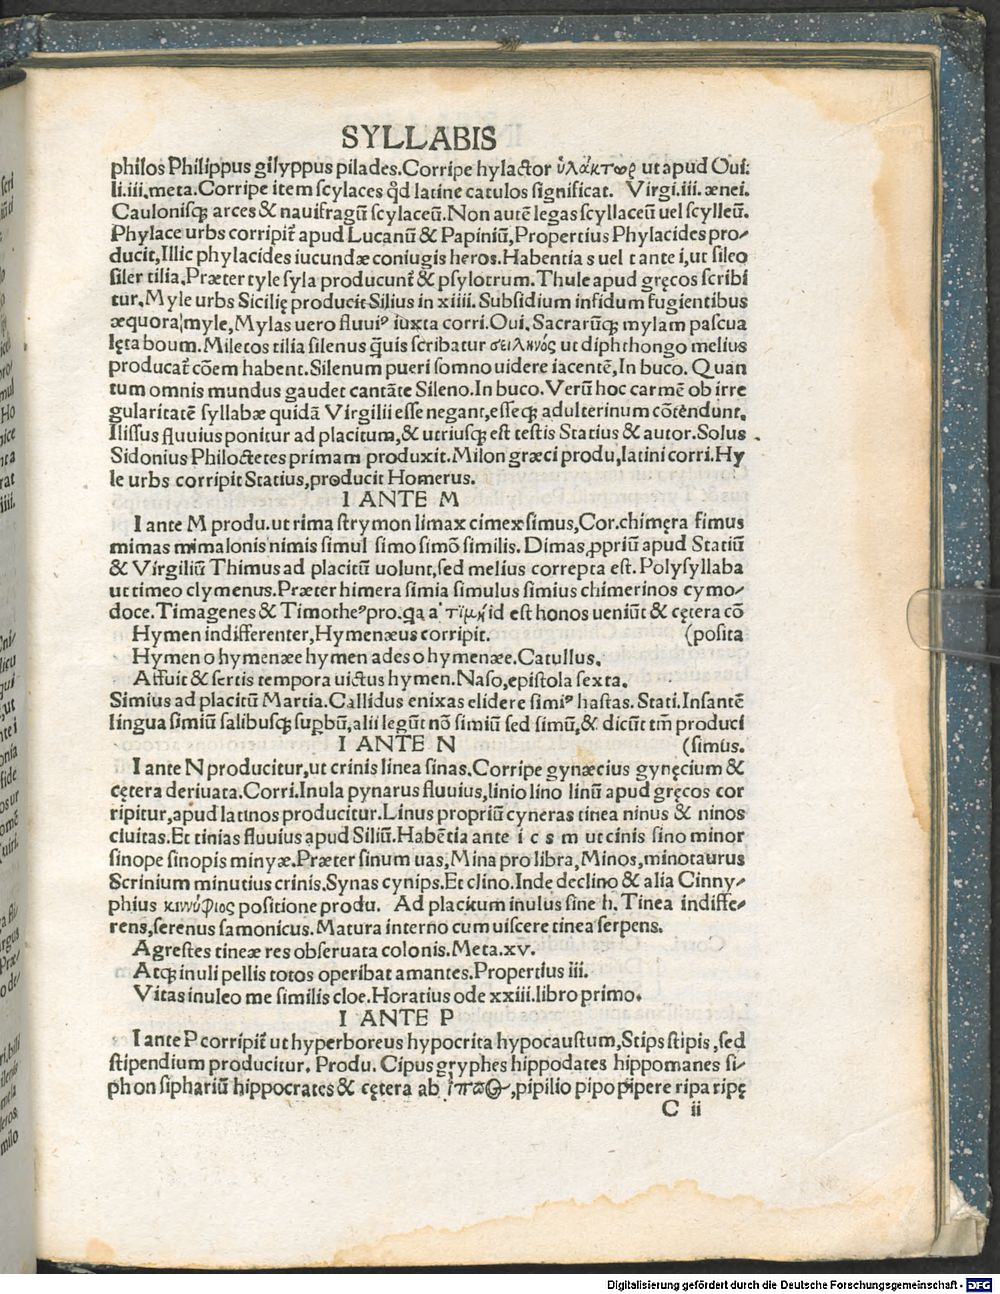 SYLLABIS
philos Philippus gilyppus pilades.Corripe hylactor ὑλάκτωρ ut apud Oui:
li.iii.meta.Corripe item scylaces qđ latine catulos significat. Virgi.iii.ænei.
Caulonisq; arces & nauifragū scylaceū.Non autē legas scyllaceū uel scylleū.
Phylace urbs corripit̃ apud Lucanū & Papiniū,Propertius Phylacides pro/
ducit,Illic phylacides iucundæ coniugis heros.Habentia s uel t ante i,ut sileo
siler tilia.Præter tyle syla producunt̃ & psylotrum.Thule apud gręcos scribi
tur.Myle urbs Sicilię producit Silius in xiiii. Subsidium infidum fugientibus
æquora myle,Mylas uero fluuiꝰ iuxta corri.Oui.Sacrarūq; mylam pascua
lęta boum.Miletos tilia silenus q̃uis scribatur σειληνός ut diphthongo melius
producat̃ cōem habent.Silenum pueri somno uidere iacentē,In buco. Quan
tum omnis mundus gaudet cantāte Sileno.In buco.Verū hoc carmē ob irre
gularitatē syllabæ quidā Virgilii esse negant,esseq; adulterinum cōtēdunt.
Ilissus fluuius ponitur ad placitum,& utriusq; est testis Statius & autor.Solus
Sidonius Philoctetes primam produxit.Milon græci produ,latini corri.Hy
le urbs corripit Statius,producit Homerus.
I ANTE M
I ante M produ.ut rima strymon limax cimex simus,Cor.chimęra fimus
mimas mimalonis nimis simul simo simō similis. Dimas,ꝓpriū apud Statiū
& Virgiliū Thimus ad placitū uolunt,sed melius correpta est. Polysyllaba
ut timeo clymenus.Præter himera simia simulus simius chimerinos cymo/
doce.Timagenes & Timotheꝰpro.qa a' τϊμὴ id est honos ueniūt & cętera cō
Hymen indifferenter,Hymenæus corripit. (posita
Hymen o hymenæe hymen ades o hymenæe.Catullus.
Affuit & sertis tempora uictus hymen.Naso,epistola sexta.
Simius ad placitū Martia.Callidus enixas elidere simiꝰ hastas. Stati.Insantē
lingua simiū salibusq; supbū,alii legūt nō simiū sed simū,& dicūt tm̄ produci
I ANTE N (simus.
I ante N producitur,ut crinis linea sinas.Corripe gynæcius gynęcium &
cętera deriuata.Corri.Inula pynarus fluuius,linio lino linū apud gręcos cor
ripitur,apud latinos producitur.Linus propriū cyneras tinea ninus & ninos
ciuitas.Et tinias fluuius apud Siliū.Habētia ante i c s m ut cinis sino minor
sinope sinopis minyæ.Præter sinum uas,Mina pro libra,Minos,minotaurus
Scrinium minutius crinis.Synas cynips.Et clino.Inde declino & alia Cinny/
phius κιννύφιος positione produ. Ad placitum inulus sine h. Tinea indiffe/
rens,serenus samonicus. Matura interno cum uiscere tinea serpens.
Agrestes tineæ res obseruata colonis.Meta.xv.
Atq; inuli pellis totos operibat amantes.Propertius iii.
Vitas inuleo me similis cloe.Horatius ode xxiii.libro primo.
I ANTE P
I ante P corripit̃ ut hyperboreus hypocrita hypocaustum,Stips stipis,sed
stipendium producitur. Produ. Cipus gryphes hippodates hippomanes si/
phon siphariū hippocrates & cętera ab ,pipilio pipo pipere ripa ripę
C ii
Digitalisierung gefördert durch die Deutsche Forschungsgemeinschaft - DFG